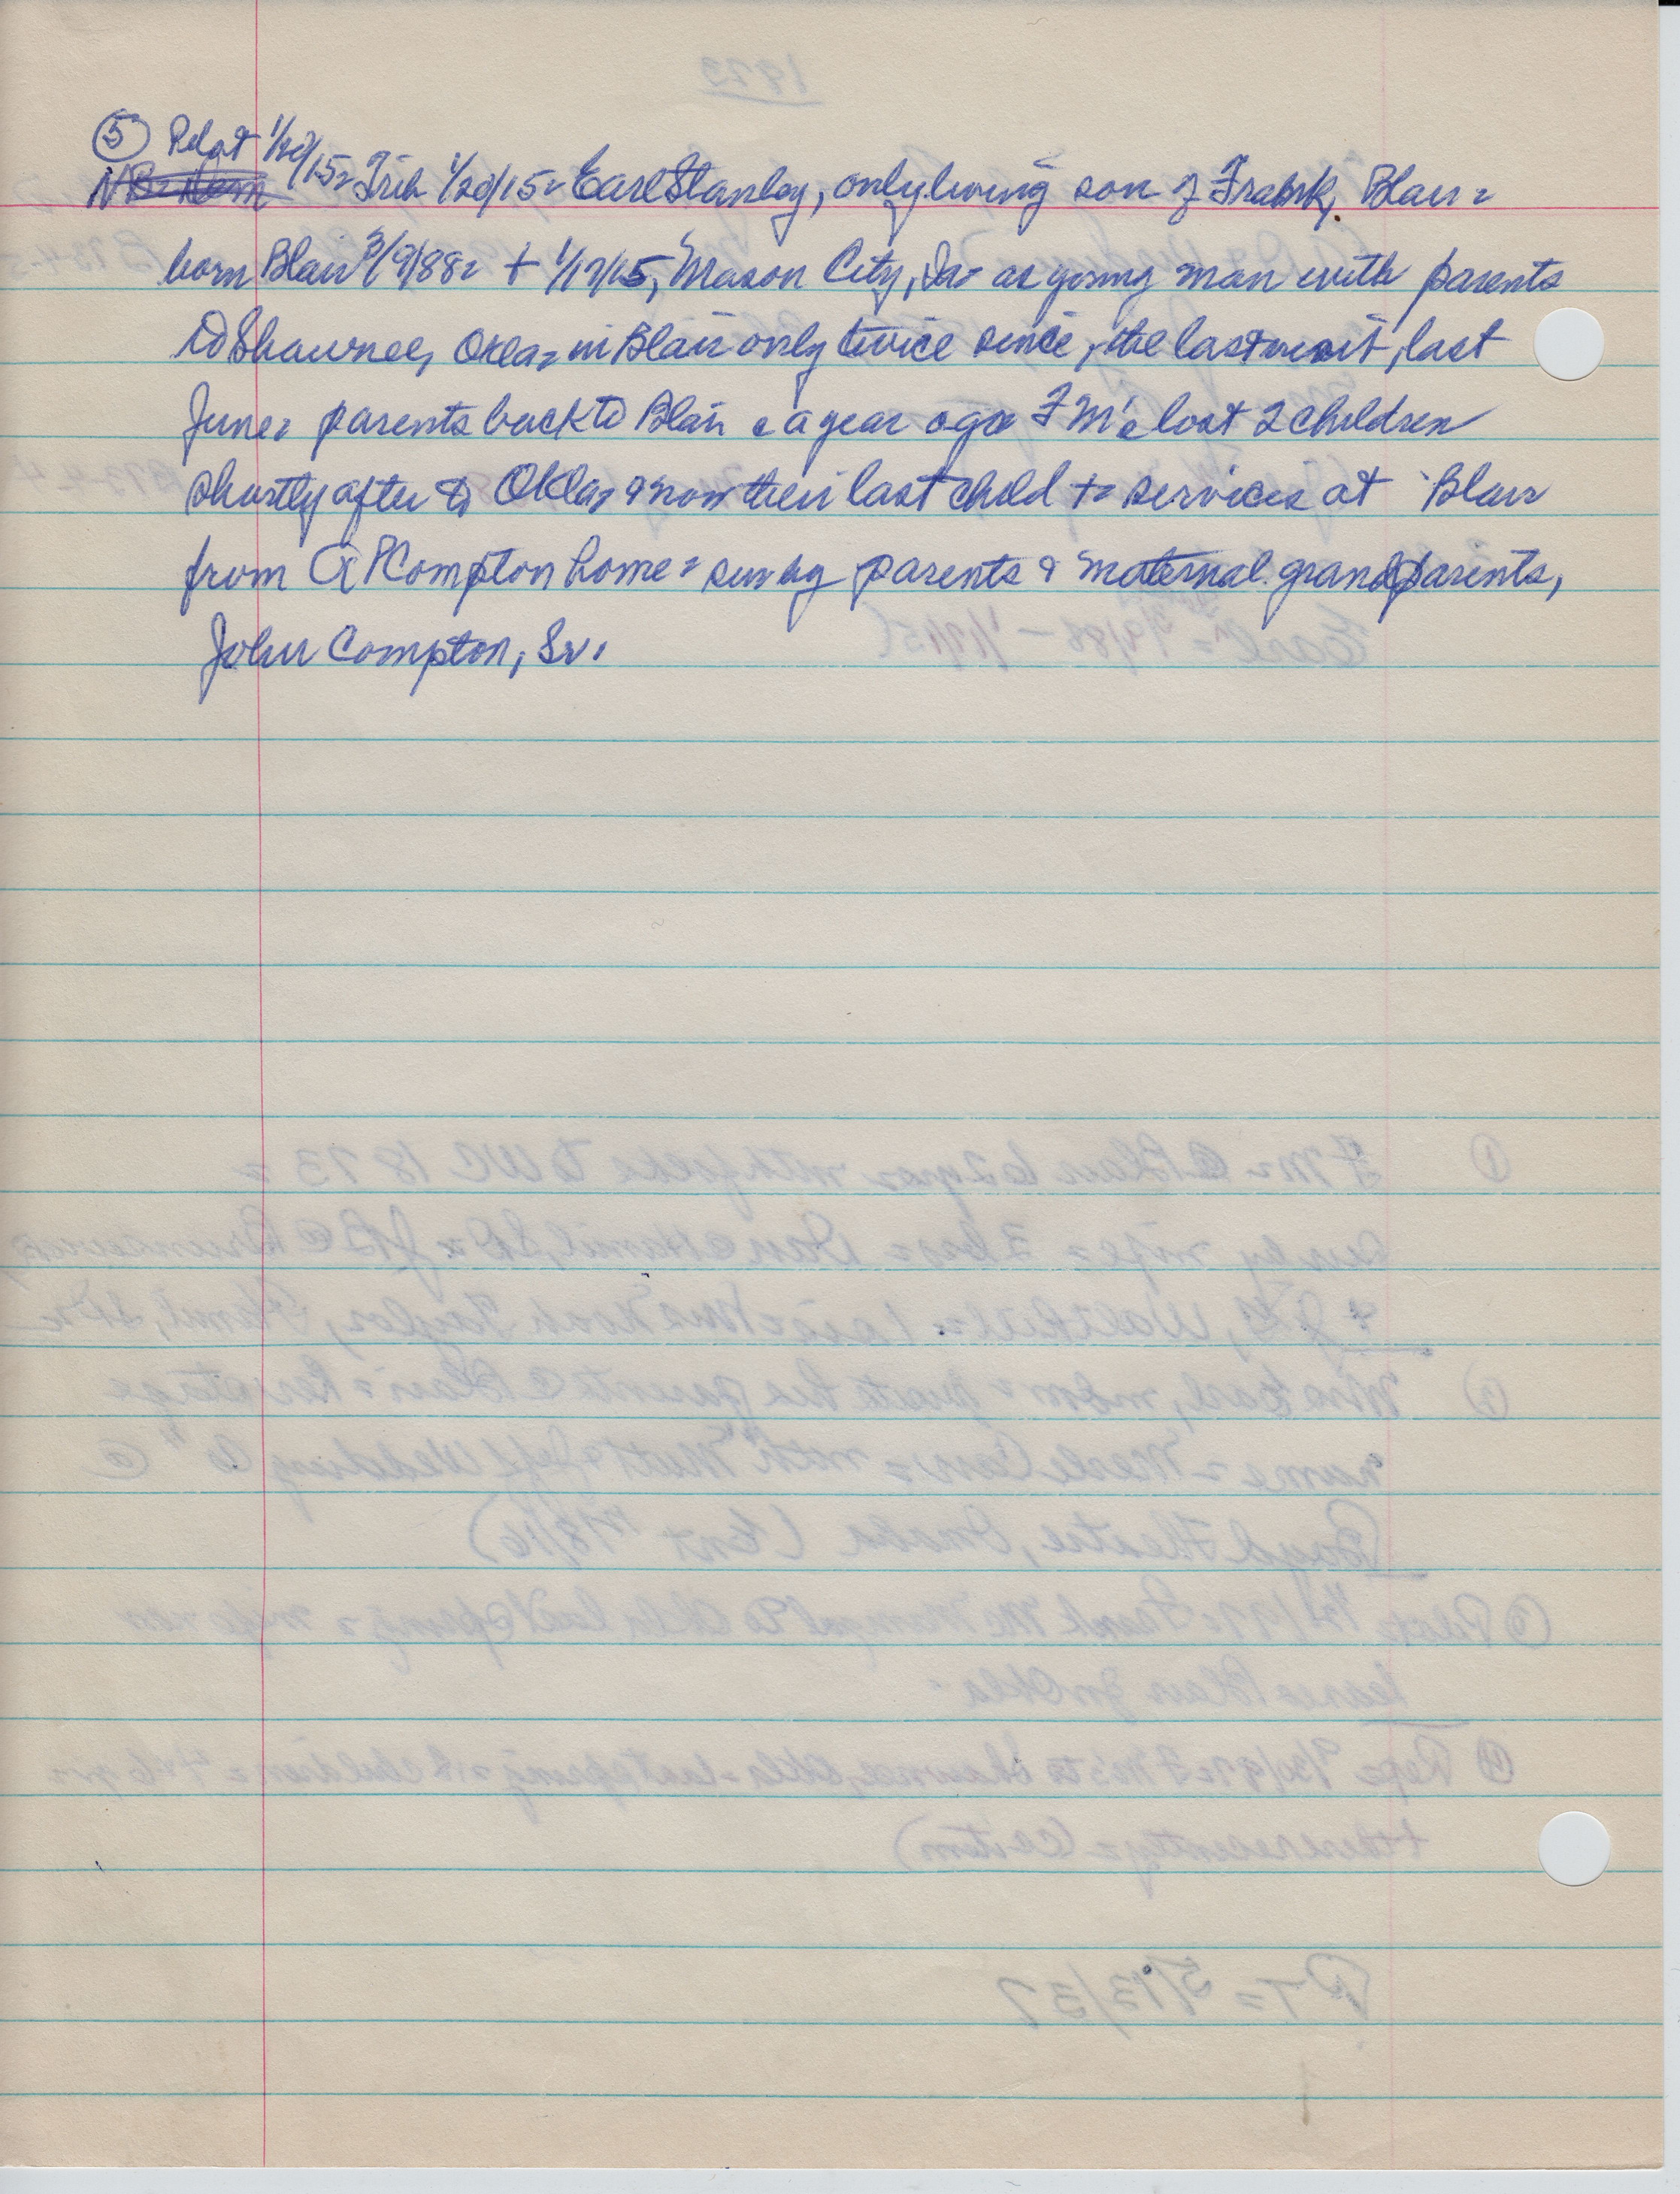 ⑤ Pilot 1/20/15=
Trib 1/20/15= Earl Stanley, only living son of Frank, Blair=
born Blair 3/9/88= + 1/17/15, Mason City, Ia= as young man with parents
to Shawnee, Okla= in Blair only twice since, the last visit, last
June= parents back to Blair c a year ago= F M's lost 2 children
shortly after to Okla= & now their last child += services at Blair
from A R Compton home= sur by parents & maternal grandparents,
John Compton, Sr.